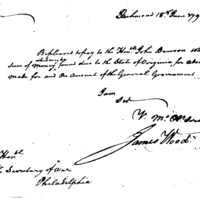 Richmond 18th June 179
Be pleased to pay to the Honble John Dawson
Sum of Money found due to the State of Virginia for
made for and on Account of the General Government.
I am
Sir
Y. Mo.
James Wood
The Secretary of War
Philadelphia